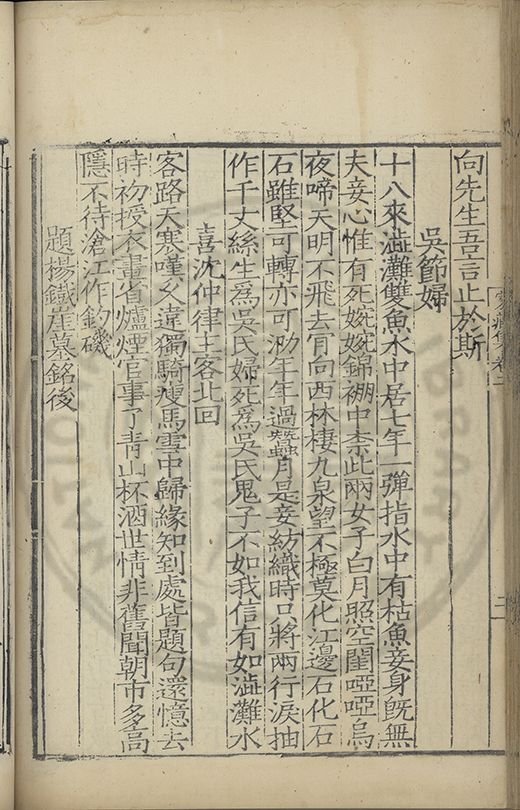 向先生吾言止於斯
吳節婦
十八來澁灘雙魚水中居七年一彈指水中有枯魚妾身旣無
夫妾心惟有死婉婉錦襁中柰此兩女子白月照空閨啞啞烏
夜啼天明不飛去肯向西林棲九泉望不極莫化江邊石化石
石雖堅可轉亦可泐年年過蠶月是妾紡織時只將兩行淚抽
作千丈絲生爲吳氏婦死爲吳氏鬼子不如我信有如澁灘水
喜沈仲律主客北回
客路天寒嘆久違獨騎瘦馬雪中歸緣知到處皆題句還憶去
時初授衣畫省爐煙官事了靑山杯酒世情非舊聞朝市多高
隱不待滄江作釣磯
題楊鐵崖墓銘後
卷二
二